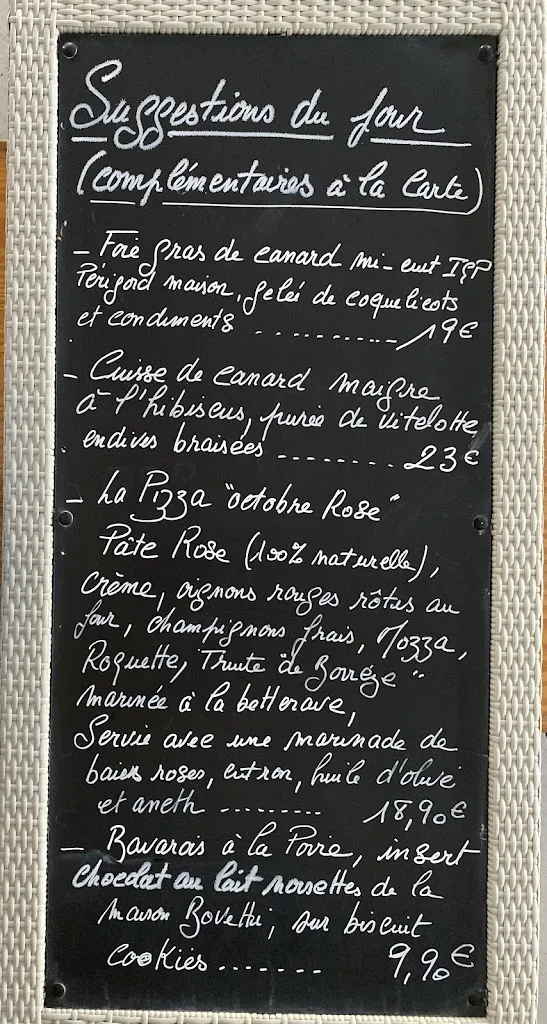 Suggestions du Jour
(complémentaires à la Carte)
- Foie gras de canard mi-cuit IGP
Périgord maison, gelée de coquelicots
et condiments ........... 19€
- Cuisse de canard maigre
à l'hibiscus, purée de vitelotte,
endives braisées ......... 23€
- La Pizza "octobre Rose"
Pâte Rose (100% naturelle),
crème, oignons rouges rôtis au
four, champignons frais, Mozza,
Roquette, Truite "de Borrèze"
marinée à la betterave,
Servie avec une marinade de
baies roses, citron, huile d'olive
et aneth ......... 18,90€
- Bavarois à la Poire, insert
chocolat au lait noisettes de la
maison Bovetti, sur biscuit
cookies ....... 9,90€